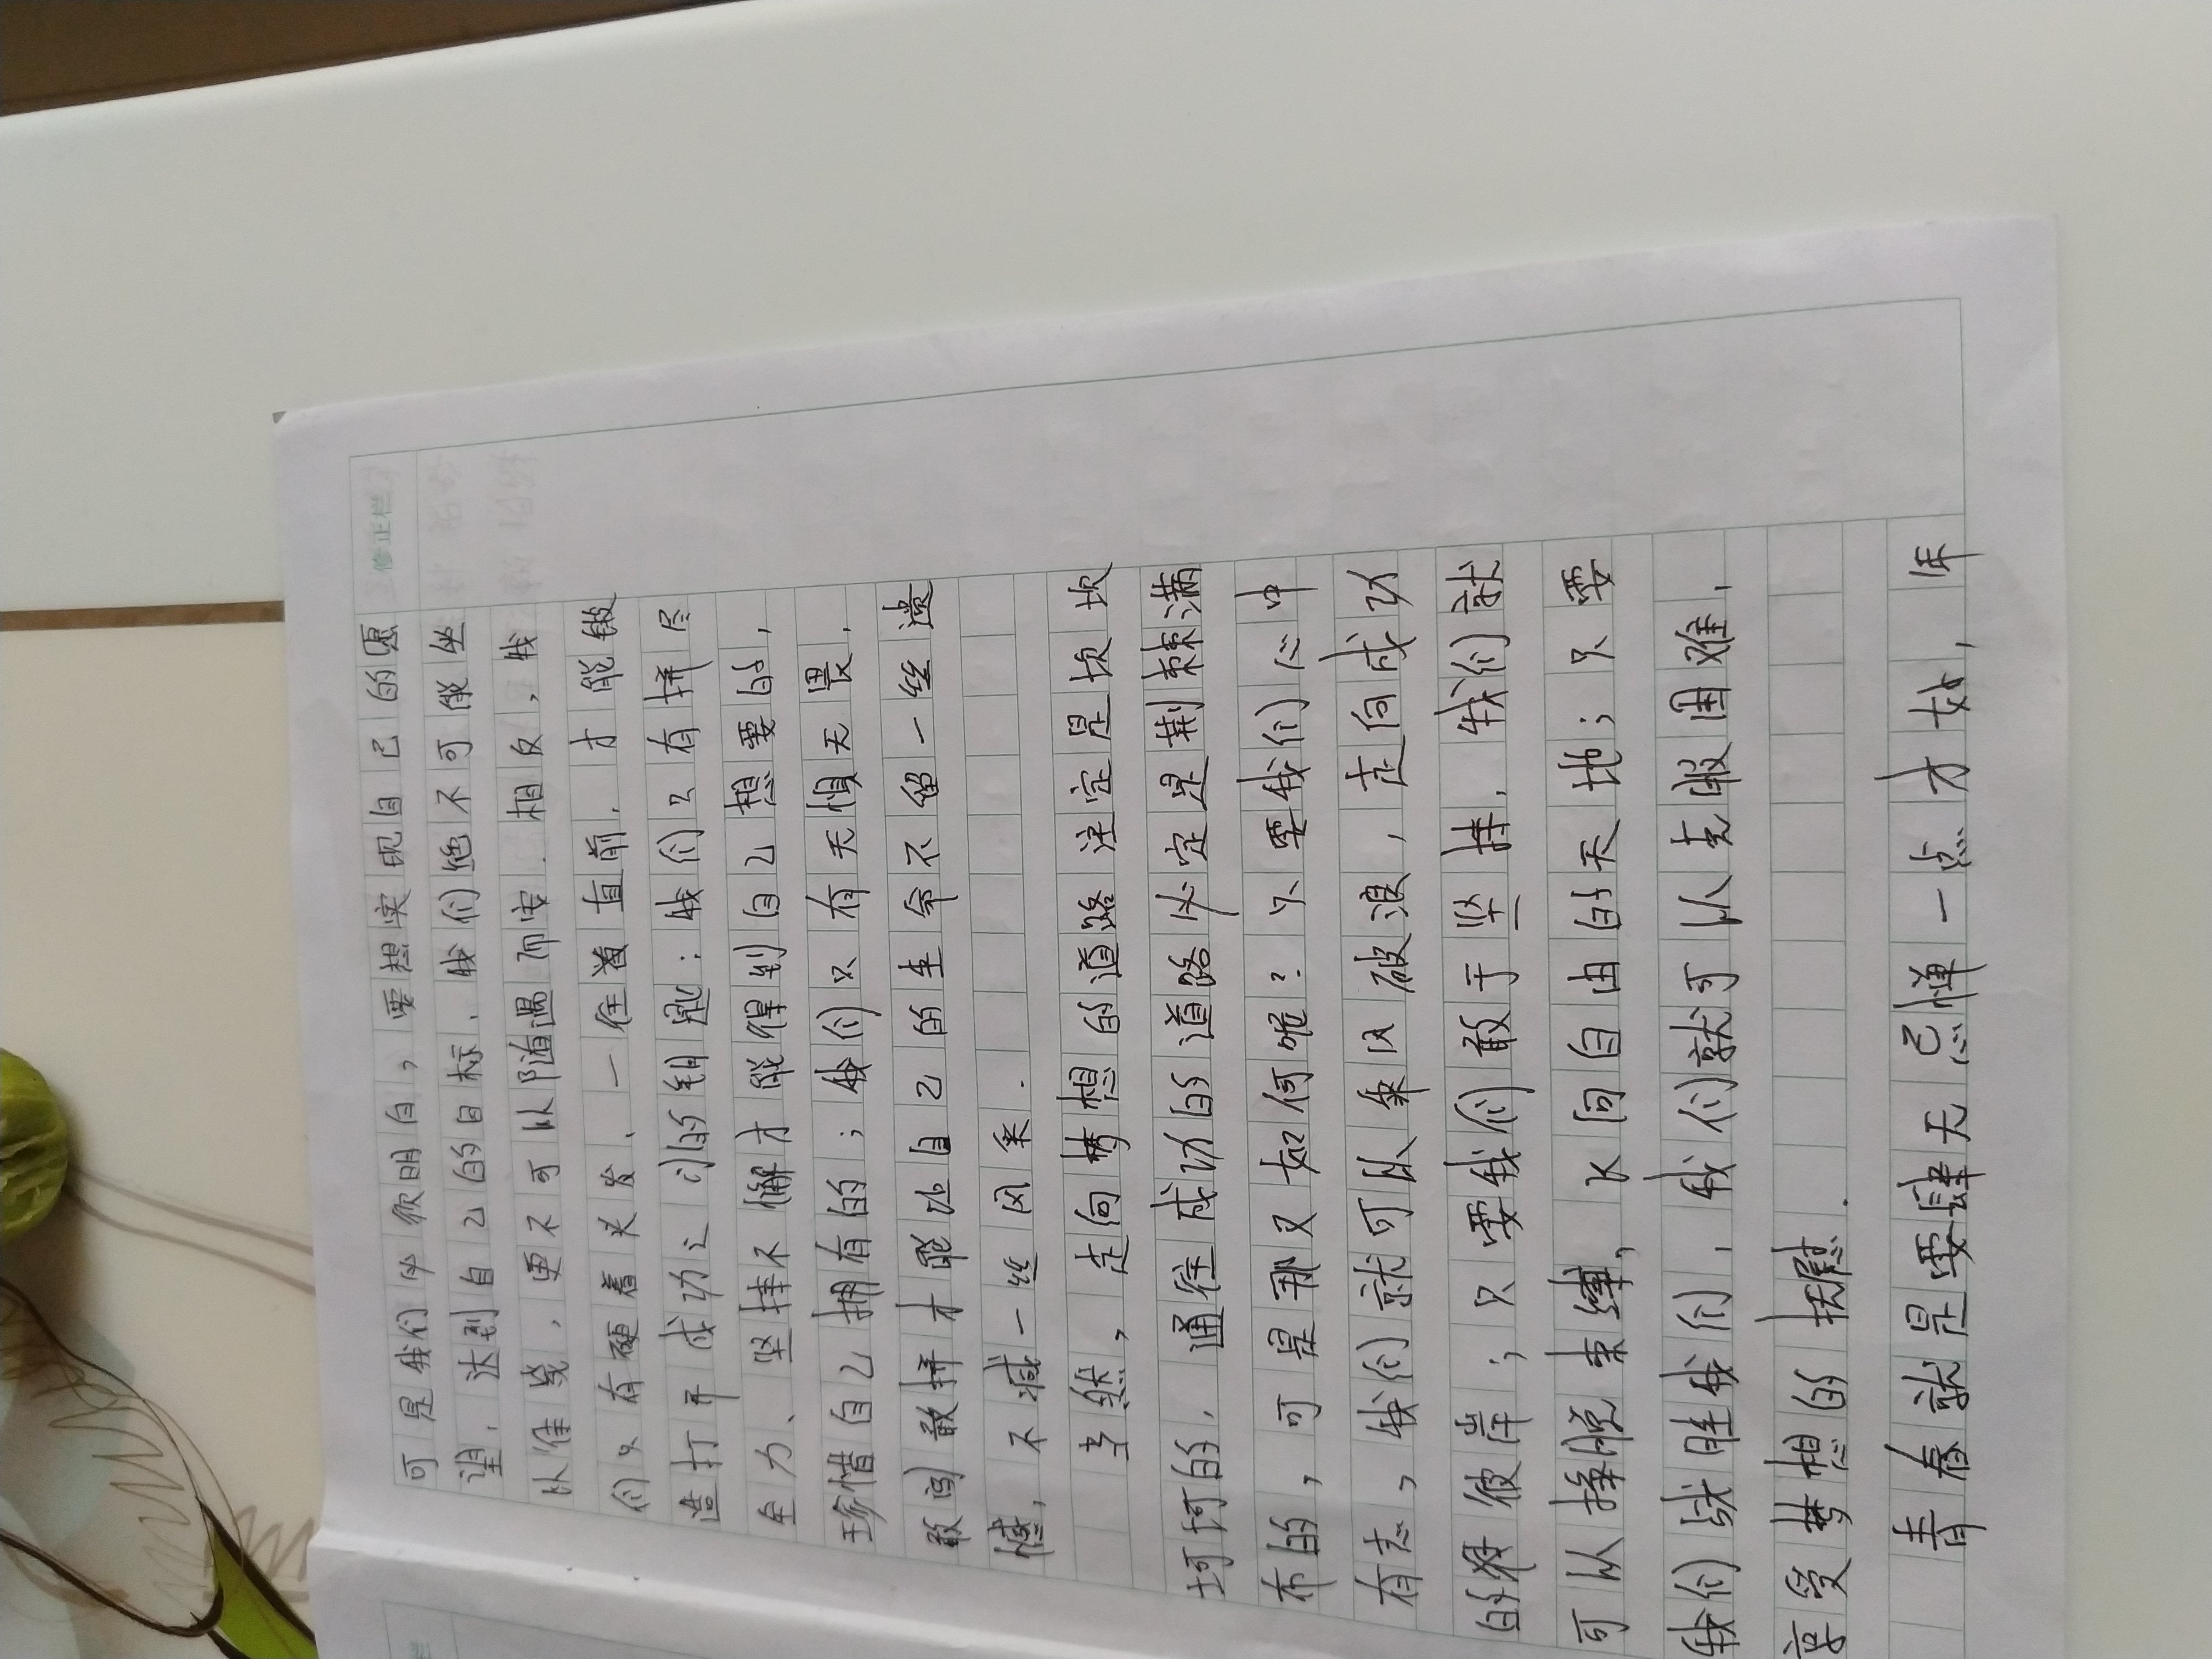 修正栏
可是我们必须明白，要想实现自己的愿
望，达到自己的目标，我们绝不可能坐
以待毙，更不可以随遇而安．相反，我
们只有硬着头发，一往直前，才能铍
造打开成功之门的钥匙；我们只有拼尽
全力、坚持不懈才能得到自己想要的，
珍惜自己拥有的；我们只有无惧无畏，
敢闯敢拼才能让自己的生命不留一丝遗
憾，不减一丝风采．
当然，走向梦想的道路注定是坎坎
坷坷的，通往成功的道路必定是荆棘满
布的，可是那又如何呢？只要我们心中
有志，我们就可以乘风破浪，走向成功
的彼岸；只要我们敢于坚持，我们就
可以挣脱束缚，飞向自由的天地；只要
我们战胜我们，我们就可以克服困难，
享受梦想的抚慰．
青春就是要肆无忌惮一点才好，年